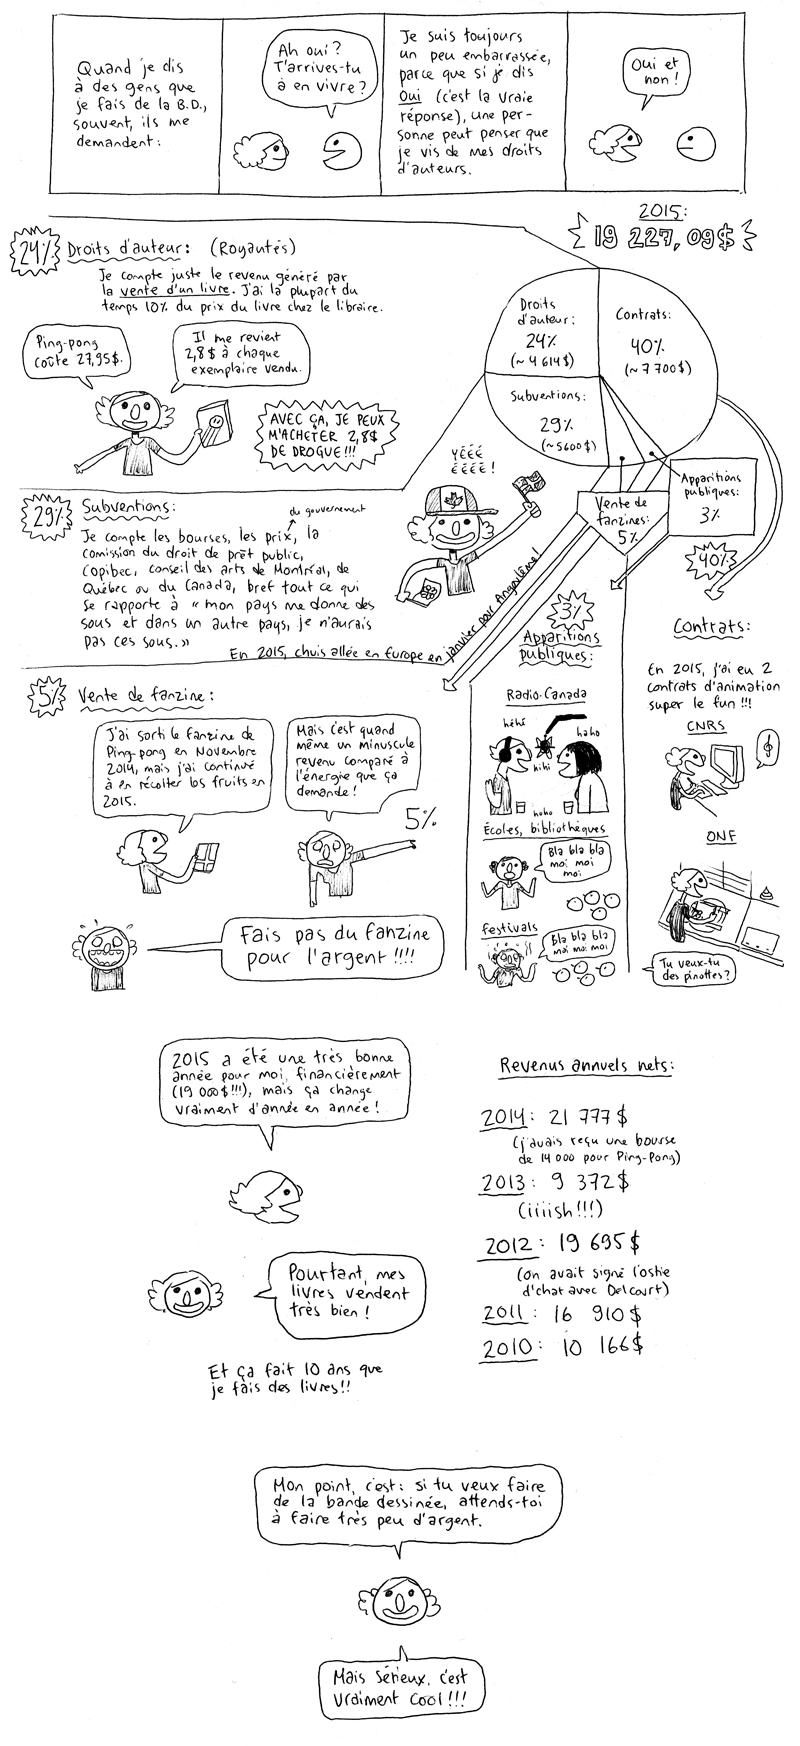 Quand je dis
à des gens que
je fais de la B.D.,
souvent, ils me
demandent :
Ah oui ?
T'arrives-tu
à en vivre ?
Je suis toujours
un peu embarrassée,
parce que si je dis
Oui (c'est la vraie
réponse), une per-
sonne peut penser que
je vis de mes droits
d'auteurs.
Oui et
non !
2015:
19 227,09$
24% Droits d'auteur : (Royautés)
Je compte juste le revenu généré par
la vente d'un livre. J'ai la plupart du
temps 10% du prix du livre chez le libraire.
Ping-pong
coûte 27,95$.
Il me revient
2,8$ à chaque
exemplaire vendu.
AVEC ÇA, JE PEUX
M'ACHETER 2,8$
DE DROGUE!!!
Droits
d'auteur :
24%
(~ 4 614$)
Contrats:
40%
(~ 7 700$)
Subventions:
29%
(~5600$)
Vente de
fanzines:
5%
Apparitions
publiques:
3%
29% Subventions:
du gouvernement
Je compte les bourses, les prix, la
comission du droit de prêt public,
Copibec, conseil des arts de Montréal, de
Québec ou du Canada, bref tout ce qui
se rapporte à « mon pays me donne des
sous et dans un autre pays, je n'aurais
pas ces sous.»
YÉÉÉ
ÉÉÉÉ !
En 2015, chuis allée en Europe en janvier par Angoulême!
5% Vente de fanzine :
J'ai sorti le fanzine de
Ping-pong en Novembre
2014, mais j'ai continué
à en récolter les fruits en
2015.
Mais c'est quand
même un minuscule
revenu comparé à
l'énergie que ça
demande !
5%
Fais pas du fanzine
pour l'argent !!!!
3%
Apparitions
publiques:
Radio-Canada
héhé
haha
hihi
hoho
Écoles, bibliothèques
Bla bla bla
moi moi
moi
festivals
Bla bla bla
moi moi moi
40%
Contrats:
En 2015, j'ai eu 2
contrats d'animation
super le fun !!!
CNRS
ONF
Tu veux-tu
des pinottes ?
2015 a été une très bonne
année pour moi, financièrement
(19 000$!!!), mais ça change
vraiment d'année en année !
Pourtant, mes
livres vendent
très bien !
Et ça fait 10 ans que
je fais des livres!!
Revenus annuels nets:
2014: 21 777$
(j'avais reçu une bourse
de 14 000 pour Ping-Pong)
2013: 9 372$
(iiiish!!!)
2012: 19 695$
(on avait signé l'ostie
d'chat avec Delcourt)
2011: 16 910$
2010: 10 166$
Mon point, c'est: si tu veux faire
de la bande dessinée, attends-toi
à faire très peu d'argent.
Mais sérieux, c'est
vraiment cool!!!